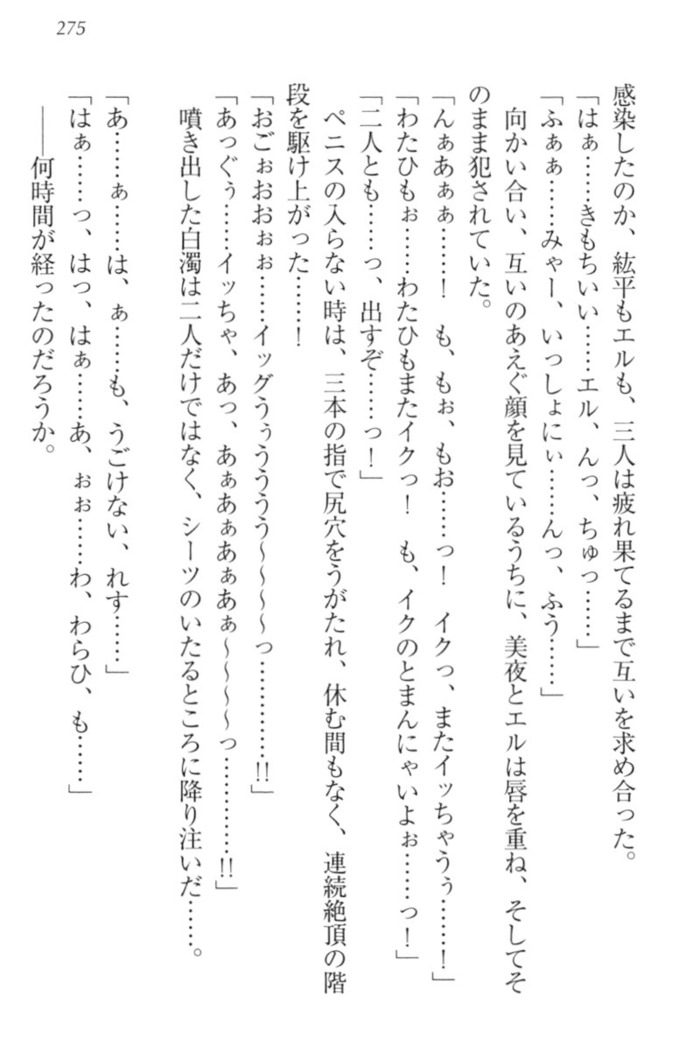 275
感染したのか、紘平もエルも、三人は疲れ果てるまで互いを求め合った。
「はぁ……きもちいい……エル、んっ、ちゅっ……」
「ふぁぁ……みゃー、いっしょにぃ……んっ、ふう……」
向かい合い、互いのあえぐ顔を見ているうちに、美夜とエルは唇を重ね、そしてそ
のまま犯されていた。
「んぁあぁぁ……！　も、もぉ、もお……っ！　イクっ、またイッちゃうぅ……！」
「わたひもぉ……わたひもまたイクっ！　も、イクのとまんにゃいよぉ……っ！」
「二人とも……っ、出すぞ……っ！」
ペニスの入らない時は、三本の指で尻穴をうがたれ、休む間もなく、連続絶頂の階
段を駆け上がった……！
「おごぉおおぉぉ……イッグうぅううう～～～～っ…………!!」
「あっぐぅ……イッちゃ、あっ、あぁあぁあぁあぁ～～～～っ…………!!」
噴き出した白濁は二人だけではなく、シーツのいたるところに降り注いだ……。
「あ……ぁ……は、ぁ……も、うごけない、れす……」
「はぁ……っ、はっ、はぁ……あ、ぉぉ……わ、わらひ、も……」
――何時間が経ったのだろうか。